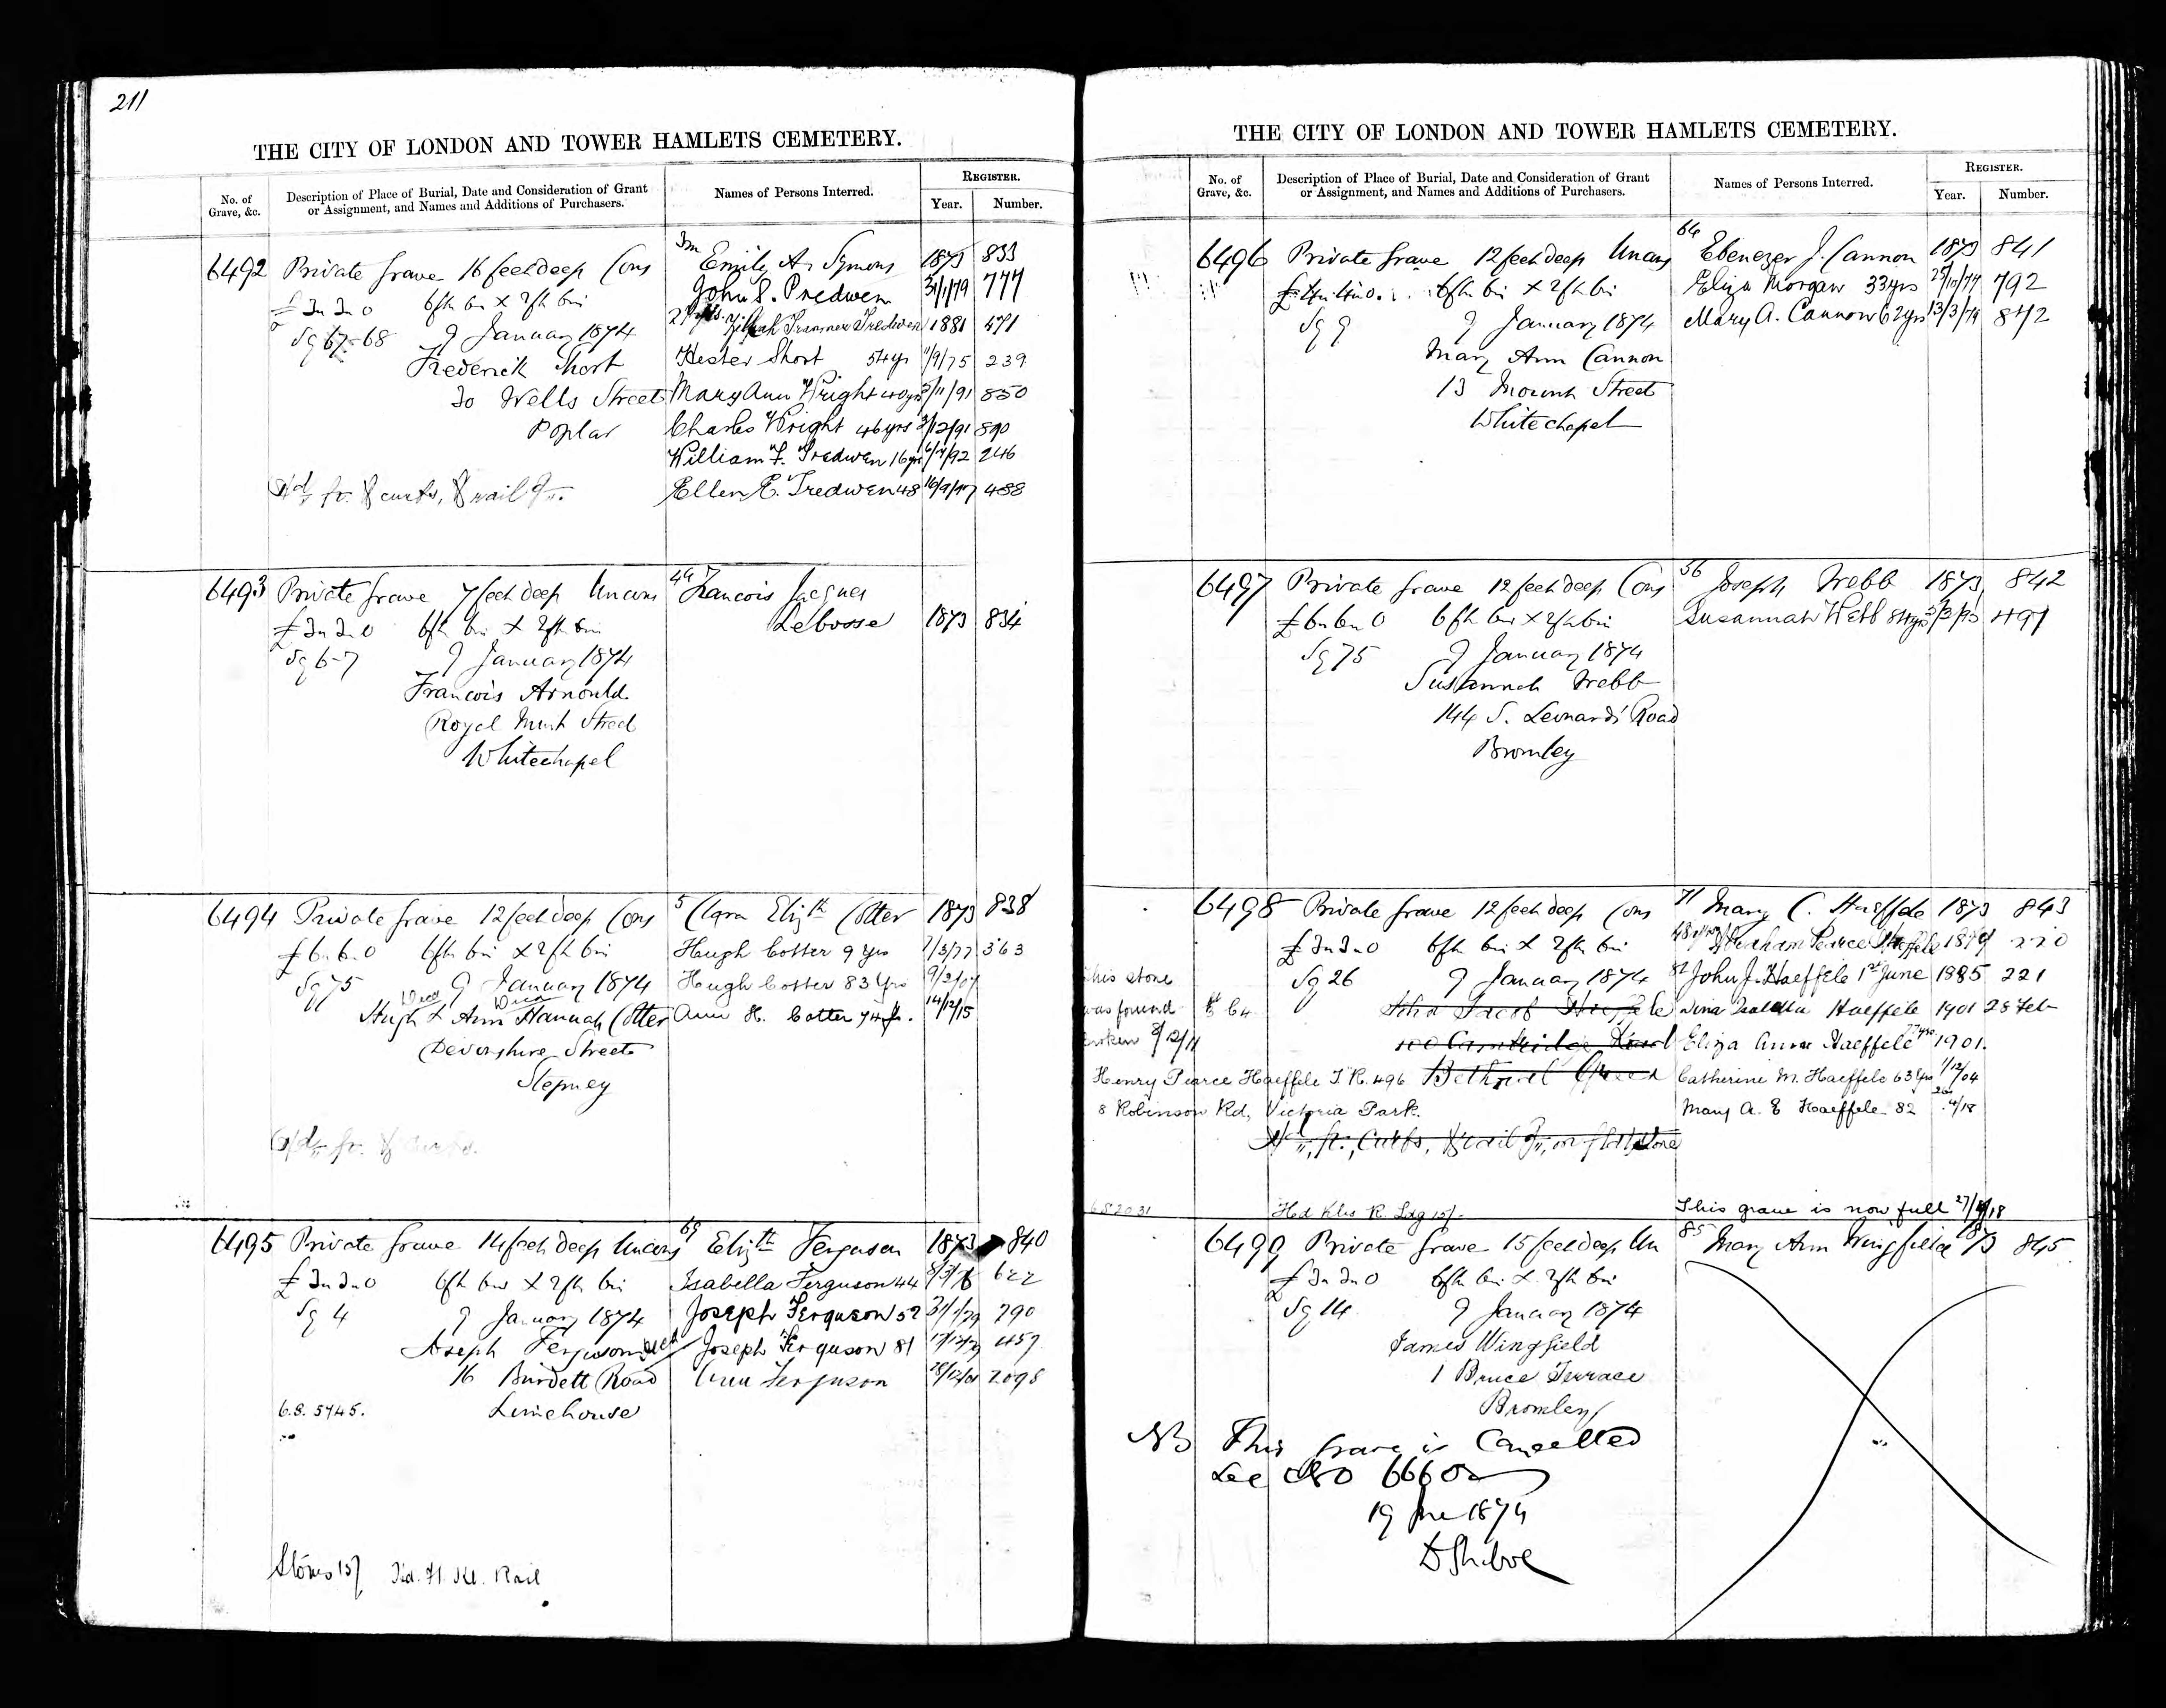 211
THE CITY OF LONDON AND TOWER HAMLETS CEMETERY.
No. of Grave, &c.
Description of Place of Burial, Date and Consideration of Grant or Assignment, and Names and Additions of Purchasers.
Names of Persons Interred.
REGISTER.
Year. Number.
6492 Private Grave 16 feet deep Cons
3m Emily A. Symons 1873 833
£3.3.0 6ft 6in x 2ft 6in
John S. Tredwen 31/1/79 777
Sq 67-68 9 January 1874
Tredwen 1881 471
Frederick Short
Hester Short 54yrs 11/9/75 239
30 Wells Street
Mary Ann Wright 40yrs /11/91 850
Poplar
Charles Wright 46yrs 3/12/91 890
William F. Tredwen 16yrs 6/4/92 246
Ellen E. Tredwen 48 488
6493 Private Grave 7 feet deep Uncons
44 Francois Jacques
£3.3.0 6ft 6in x 2ft 6in
Lebosse 1873 834
Sq 6-7 9 January 1874
Francois Arnould
Royal Mint Street
Whitechapel
6494 Private Grave 12 feet deep Cons
5 Clara Elizth Cotter 1873 838
£6.6.0 6ft 6in x 2ft 6in
Hugh Cotter 9 yrs /3/77 363
Sq 75 9 January 1874
Hugh Cotter 83 Yrs 9/2/07
Decd Decd
Hugh & Ann Hannah Cotter
Ann H. Cotter 74yrs. 14/12/15
Devonshire Street
Stepney
6495 Private Grave 14 feet deep Uncons
69 Elizth Ferguson 1873 840
£3.3.0 6ft 6in x 2ft 6in
Isabella Ferguson 44 622
Sq 4 9 January 1874
Joseph Ferguson 52 31/1/79 790
Joseph Ferguson Decd
Joseph Ferguson 81 457
16 Burdett Road
Ann Ferguson 28/12/01 2098
6.8.5745. Limehouse
Stones 15/ Hd. Ft. Kb. Rail
THE CITY OF LONDON AND TOWER HAMLETS CEMETERY.
No. of Grave, &c.
Description of Place of Burial, Date and Consideration of Grant or Assignment, and Names and Additions of Purchasers.
Names of Persons Interred.
REGISTER.
Year. Number.
6496 Private Grave 12 feet deep Uncons
64 Ebenezer J. Cannon 1873 841
£4.4.0. 6ft 6in x 2ft 6in
Eliza Morgan 33yrs 25/10/77 792
Sq 9 9 January 1874
Mary A. Cannon 62yrs 13/3/79 842
Mary Ann Cannon
13 Mount Street
Whitechapel
6497 Private Grave 12 feet deep Cons
56 Joseph Webb 1873 842
£6.6.0 6ft 6in x 2ft 6in
Susannah Webb 84yrs 497
Sq 75 9 January 1874
Susannah Webb
144 S. Leonards Road
Bromley
6498 Private Grave 12 feet deep Cons
71 Mary C. Haeffele 1873 843
£3.3.0 6ft 6in x 2ft 6in
Pearce Haeffele 1879 220
Sq 26 9 January 1874
John J. Haeffele 1st June 1885 221
This stone
was found
broken 9/12/11
John Jacob Haeffele
Haeffele 1901 28 Feb
100 Cambridge Road
Eliza Annie Haeffele 1901.
Bethnal Green
Henry Pearce Haeffele T.R. 496
Catherine M. Haeffele 63 Yrs 1/12/04
8 Robinson Rd, Victoria Park.
Mary A. E Haeffele 82 /4/18
682031
This grave is now full 27/4/18
6499 Private Grave 15 feet deep Un
85 Mary Ann Wingfield 1873 845
£3.3.0 6ft 6in x 2ft 6in
Sq 14 9 January 1874
James Wingfield
1 Bruce Terrace
Bromley
NB This Grave is Cancelled
See No 6660
19 June 1874